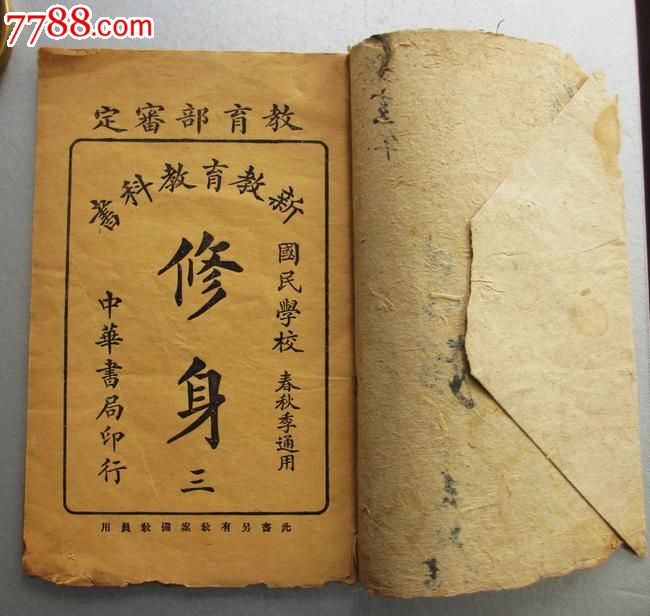 7788.com
教育部審定
新教育教科書
國民學校 春秋季通用
修身 三
中華書局印行
此書另有教案備教員用